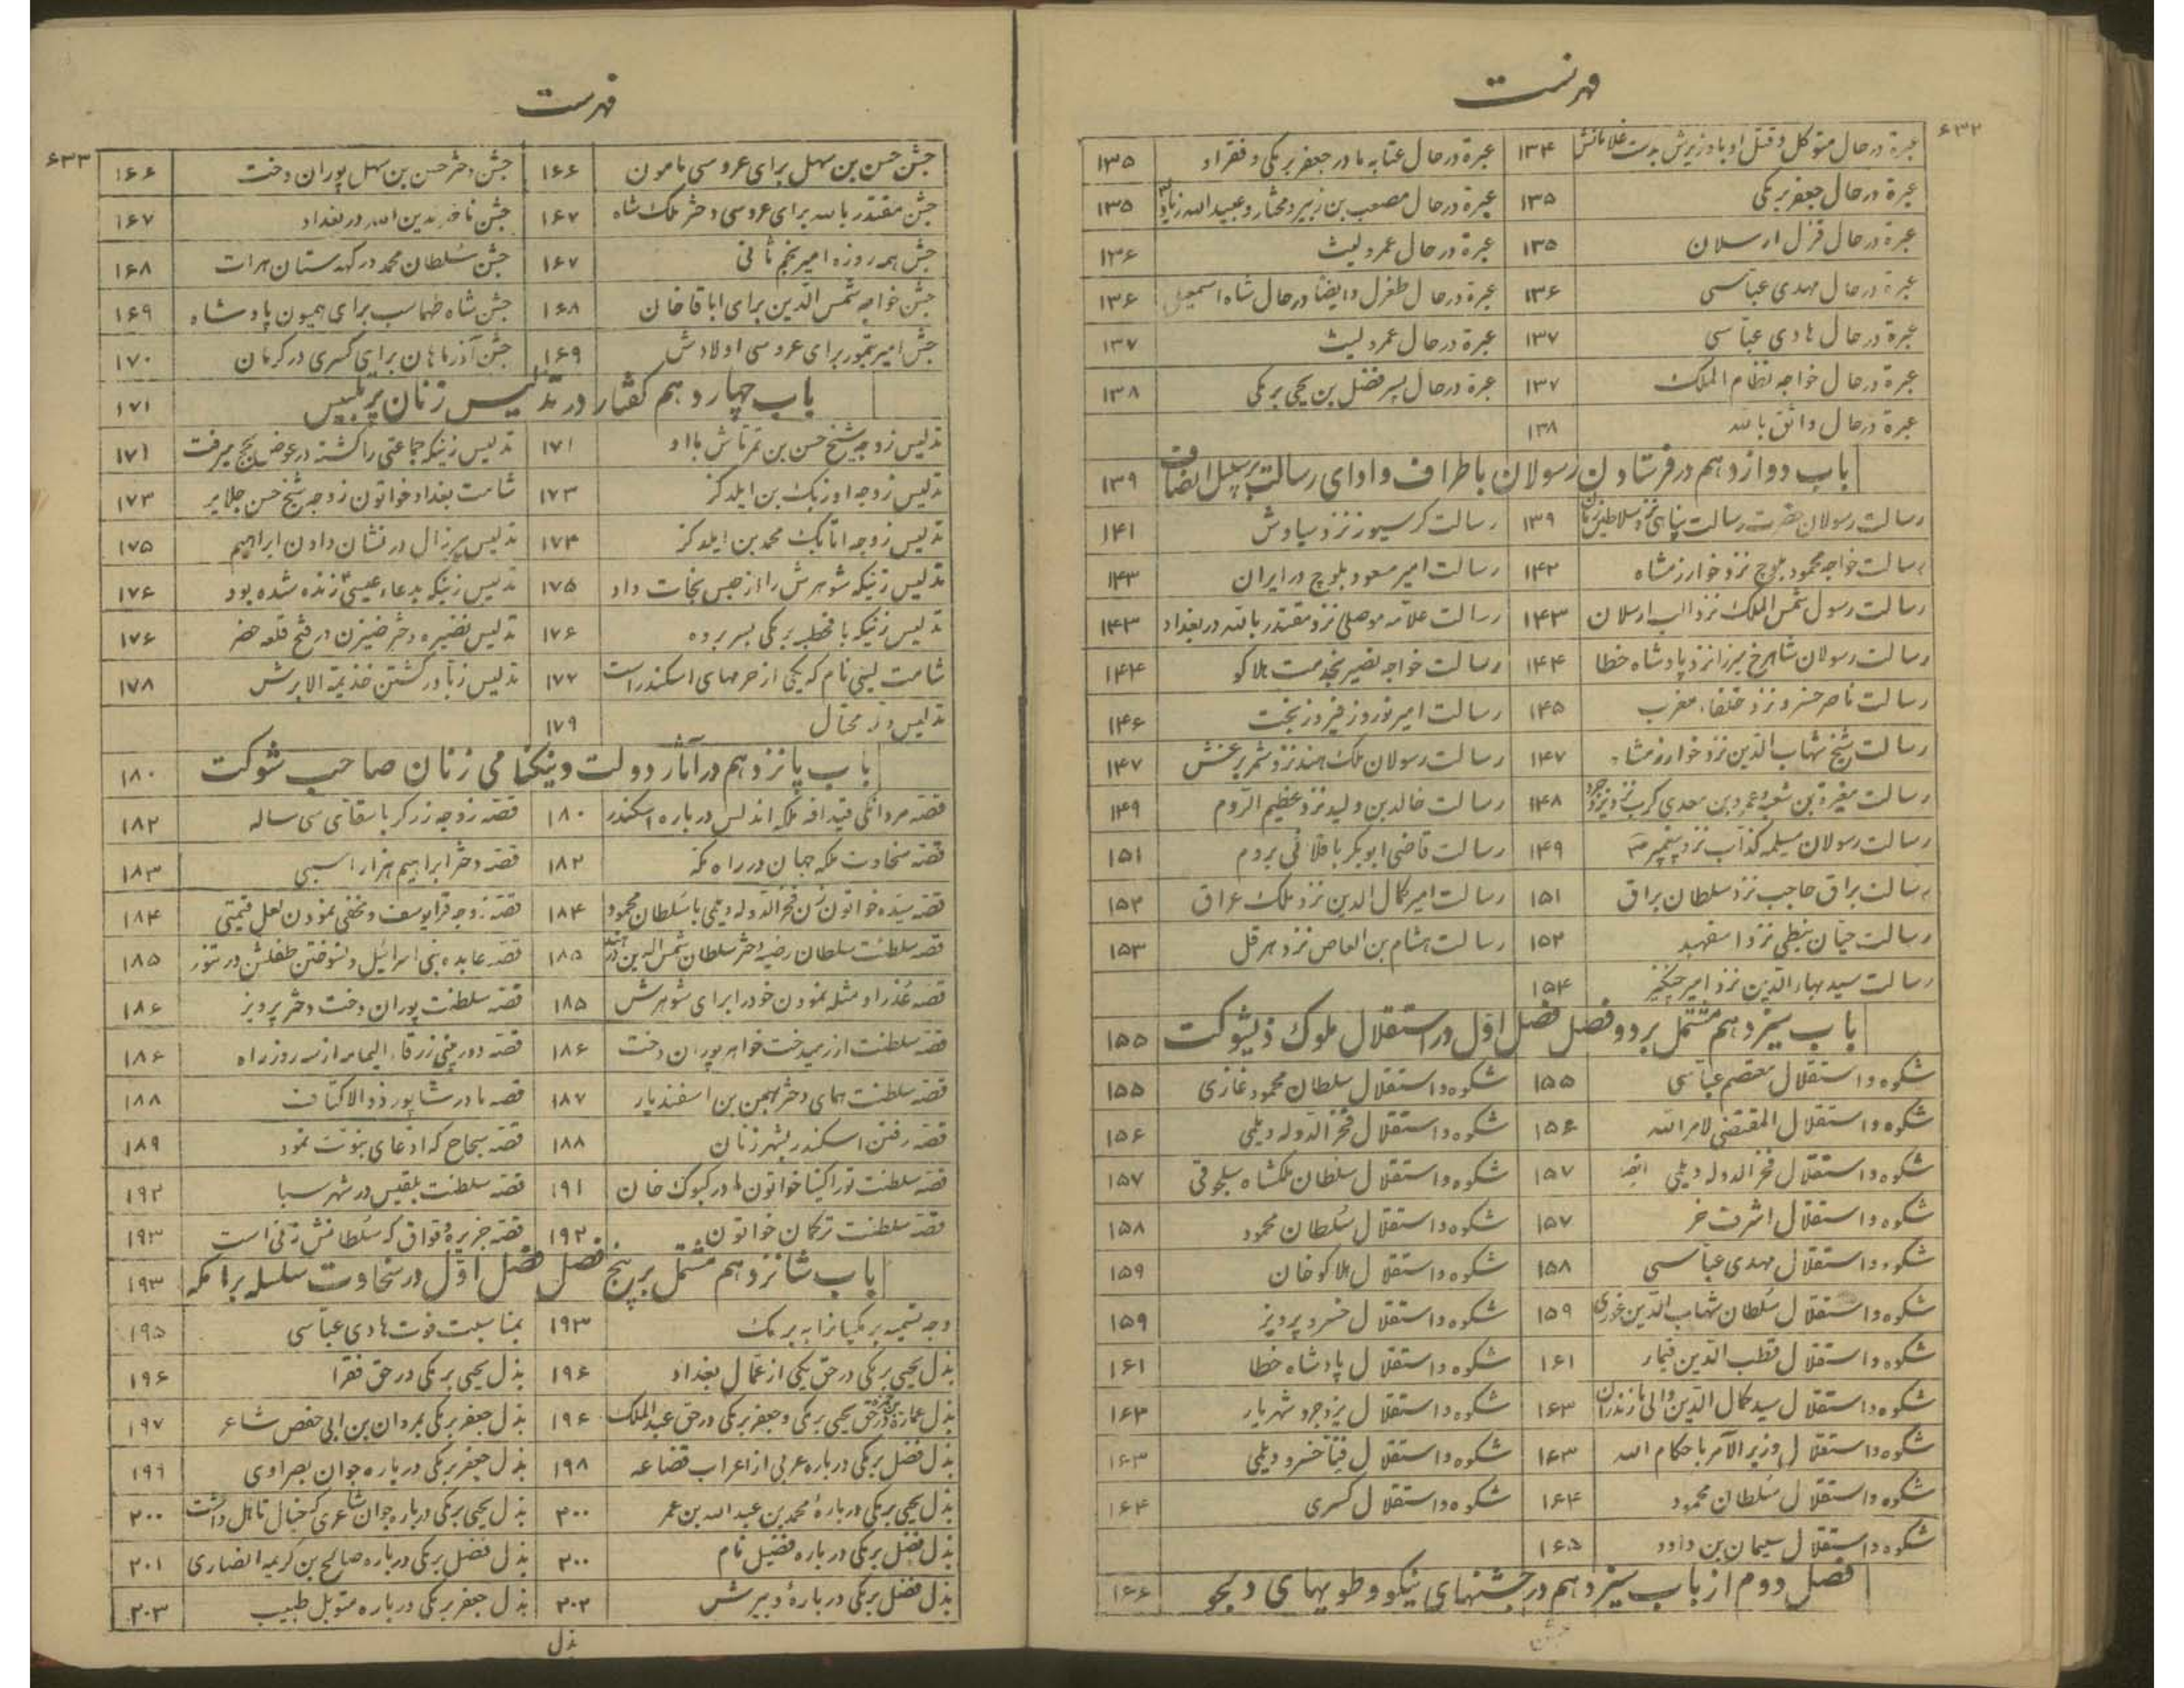 فهرست
۶۳۲
عبرة در حال متوکل و قتل او با وزیرش بدست غلامانش ۱۳۴ عبرة در حال عتابه مادر جعفر برمکی و فقر او ۱۳۵
عبرة در حال جعفر برمکی ۱۳۵ عبرة در حال مصعب بن زبیر و مختار و عبیدالله زیاد ۱۳۵
عبرة در حال قزل ارسلان ۱۳۵ عبرة در حال عمرو لیث ۱۳۶
عبرة در حال مهدی عباسی ۱۳۶ عبرة در حال طغرل و ایضا در حال شاه اسمعیل ۱۳۶
عبرة در حال هادی عباسی ۱۳۷ عبرة در حال عمرو لیث ۱۳۷
عبرة در حال خواجه نظام الملک ۱۳۷ عبرة در حال پسر فضل بن یحیی برمکی ۱۳۸
عبرة در حال واثق بالله ۱۳۸
باب دوازدهم در فرستادن رسولان باطراف و ادای رسالت بر سبیل انصاف ۱۳۹
رسالت رسولان حضرت رسالت پناهی نزد سلاطین زمان ۱۳۹ رسالت کرسیوز نزد سیاوش ۱۴۱
رسالت خواجه محمود بلوچ نزد خوارزمشاه ۱۴۲ رسالت امیر مسعود بلوچ در ایران ۱۴۳
رسالت رسول شمس الملک نزد الب ارسلان ۱۴۳ رسالت علامه موصلی نزد مقتدر بالله در بغداد ۱۴۳
رسالت رسولان شاهرخ میرزا نزد پادشاه خطا ۱۴۴ رسالت خواجه نصیر بخدمت هلاکو ۱۴۴
رسالت ناصر خسرو نزد خلفاء مغرب ۱۴۵ رسالت امیر نوروز فیروز بخت ۱۴۶
رسالت شیخ شهاب الدین نزد خوارزمشاه ۱۴۷ رسالت رسولان ملک هند نزد شمر یرعش ۱۴۷
رسالت مغیرة بن شعبه و عمرو بن معدی کرب نزد یزدجرد ۱۴۸ رسالت خالد بن ولید نزد عظیم الروم ۱۴۹
رسالت رسولان مسیلمه کذاب نزد پیغمبر ص ۱۴۹ رسالت قاضی ابوبکر باقلانی بروم ۱۵۱
رسالت براق حاجب نزد سلطان براق ۱۵۱ رسالت امیر کمال الدین نزد ملک عراق ۱۵۲
رسالت حیان نبطی نزد اسفهبد ۱۵۲ رسالت هشام بن العاص نزد هرقل ۱۵۳
رسالت سید بهاء الدین نزد امیر چنگیز ۱۵۴
باب سیزدهم مشتمل بر دو فصل فصل اول در استقلال ملوک ذیشوکت ۱۵۵
شکوه و استقلال معتصم عباسی ۱۵۵ شکوه و استقلال سلطان محمود غازی ۱۵۵
شکوه و استقلال المقتضی لامر الله ۱۵۶ شکوه و استقلال فخر الدوله دیلمی ۱۵۶
شکوه و استقلال فخر الدوله دیلمی ایضا ۱۵۷ شکوه و استقلال سلطان ملکشاه سلجوقی ۱۵۷
شکوه و استقلال اشرف خر ۱۵۷ شکوه و استقلال سلطان محمود ۱۵۸
شکوه و استقلال مهدی عباسی ۱۵۸ شکوه و استقلال هلاکو خان ۱۵۹
شکوه و استقلال سلطان شهاب الدین غوری ۱۵۹ شکوه و استقلال خسرو پرویز ۱۵۹
شکوه و استقلال قطب الدین قیمار ۱۶۱ شکوه و استقلال پادشاه خطا ۱۶۱
شکوه و استقلال سید کمال الدین والی مازندران ۱۶۳ شکوه و استقلال یزدجرد شهریار ۱۶۳
شکوه و استقلال وزیر الآمر باحکام الله ۱۶۳ شکوه و استقلال فنا خسرو دیلمی ۱۶۳
شکوه و استقلال سلطان محمود ۱۶۴ شکوه و استقلال کسری ۱۶۴
شکوه و استقلال سلیمان بن داود ۱۶۵
فصل دوم از باب سیزدهم در جشنهای نیکو و طویهای دلجو ۱۶۶
جشن
فهرست
۶۳۳
جشن حسن بن سهل برای عروسی مامون ۱۶۶ جشن دختر حسن بن سهل پوران دخت ۱۶۶
جشن مقتدر بالله برای عروسی دختر ملک شاه ۱۶۷ جشن ناصر لدین الله در بغداد ۱۶۷
جشن همه روزه امیر نجم ثانی ۱۶۷ جشن سلطان محمد در کهدستان هرات ۱۶۸
جشن خواجه شمس الدین برای اباقا خان ۱۶۸ جشن شاه طهماسب برای همیون پادشاه ۱۶۹
جشن امیر تیمور برای عروسی اولادش ۱۶۹ جشن آذرماهان برای کسری در کرمان ۱۷۰
باب چهاردهم گفتار در تدلیس زنان پر تلبیس ۱۷۱
تدلیس زوجه شیخ حسن بن تمرتاش با او ۱۷۱ تدلیس زنیکه جماعتی را کشته در عوض بحج میرفت ۱۷۱
تدلیس زوجه اوزبک بن ایلدکز ۱۷۳ شامت بغداد خواتون زوجه شیخ حسن جلایر ۱۷۳
تدلیس زوجه اتابک محمد بن ایلدکز ۱۷۴ تدلیس پیر زال در نشان دادن ابراهیم ۱۷۵
تدلیس زنیکه شوهرش را از حبس نجات داد ۱۷۵ تدلیس زنیکه بدعاء عیسی زنده شده بود ۱۷۶
تدلیس زنیکه با قحطبه برمکی بسر برده ۱۷۶ تدلیس نضیره دختر ضیزن در فتح قلعه حضر ۱۷۶
شامت لیسی نام که یکی از حرمهای اسکندر است ۱۷۷ تدلیس زبا در کشتن خذیمة الابرش ۱۷۸
تدلیس دلۀ محتال ۱۷۹
باب پانزدهم در آثار دولت و نیکنامی زنان صاحب شوکت ۱۸۰
قصه مردانگی قیدافه ملکه اندلس درباره اسکندر ۱۸۰ قصه زوجه زرکر با سقای سی ساله ۱۸۲
قصه سخاوت ملکه جهان در راه مکه ۱۸۲ قصه دختر ابراهیم هزار اسبی ۱۸۳
قصه سیده خواتون زن فخر الدوله دیلمی با سلطان محمود ۱۸۴ قصه زوجه قرایوسف و مخفی نمودن لعل قیمتی ۱۸۴
قصه سلطنت سلطان رضیه دختر سلطان شمس الدین در هند ۱۸۵ قصه عابده بنی اسرائیل و نسوختن طفلش در تنور ۱۸۵
قصه عذرا و مثله نمودن خود را برای شوهرش ۱۸۵ قصه سلطنت پوران دخت دختر پرویز ۱۸۶
قصه سلطنت ازرمیدخت خواهر پوران دخت ۱۸۶ قصه دوربینی زرقاء الیمامه از سه روز راه ۱۸۶
قصه سلطنت همای دختر بهمن بن اسفندیار ۱۸۷ قصه مادر شاپور ذو الاکتاف ۱۸۸
قصه رفتن اسکندر بشهر زنان ۱۸۸ قصه سجاح که ادعای نبوت نمود ۱۸۹
قصه سلطنت توراکینا خواتون مادر کیوک خان ۱۹۱ قصه سلطنت بلقیس در شهر سبا ۱۹۲
قصه سلطنت ترکان خواتون ۱۹۲ قصه جزیره وقواق که سلطانش زنی است ۱۹۳
باب شانزدهم مشتمل بر پنج فصل فصل اول در سخاوت سلسله برامکه ۱۹۳
وجه تسمیه برمکیانرا به برمک ۱۹۳ بمناسبت فوت هادی عباسی ۱۹۵
بذل یحیی برمکی در حق یکی از عمال بغداد ۱۹۶ بذل یحیی برمکی در حق فقرا ۱۹۶
بذل عماره در حق یحیی برمکی و جعفر برمکی در حق عبد الملک ۱۹۶ بذل جعفر برمکی بمروان بن ابی حفص شاعر ۱۹۷
بذل فضل برمکی درباره عربی از اعراب قضاعه ۱۹۸ بذل جعفر برمکی درباره جوان بصراوی ۱۹۹
بذل یحیی برمکی دربارۀ محمد بن عبد الله بن عمر ۲۰۰ بذل یحیی برمکی درباره جوان شاعری که خیال تاهل داشت ۲۰۰
بذل فضل برمکی درباره فضیل نام ۲۰۰ بذل فضل برمکی درباره صالح بن کریمه انصاری ۲۰۱
بذل فضل برمکی دربارۀ دبیرش ۲۰۲ بذل جعفر برمکی درباره متوبل طبیب ۲۰۳
بذل